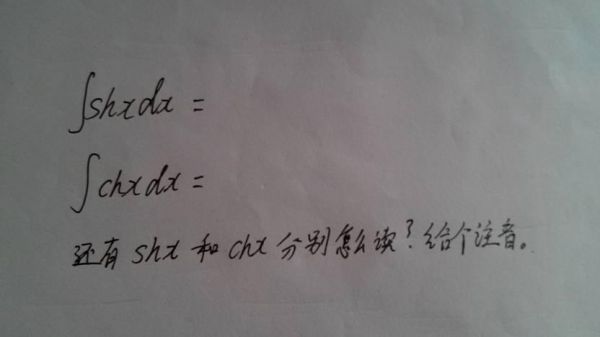 ∫shxdx =
∫chxdx =
还有 shx 和 chx 分别怎么读？给个注音。